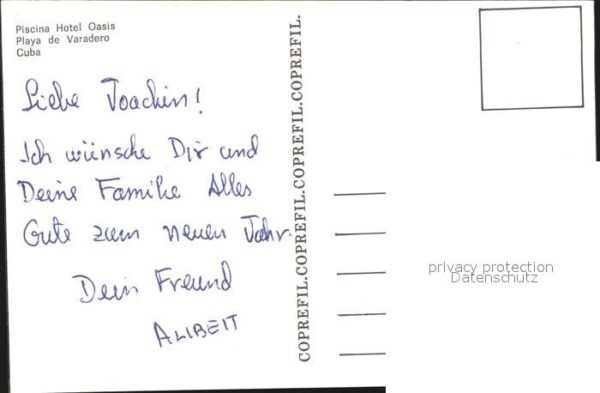 Piscina Hotel Oasis
Playa de Varadero
Cuba
Liebe Joachin!
Ich wünsche Dir und
Deine Familie Alles
Gute zum neuen Jahr.
Dein Freund
ALIBEIT
COPREFIL.COPREFIL.COPREFIL.COPREFIL.
privacy protection
Datenschutz